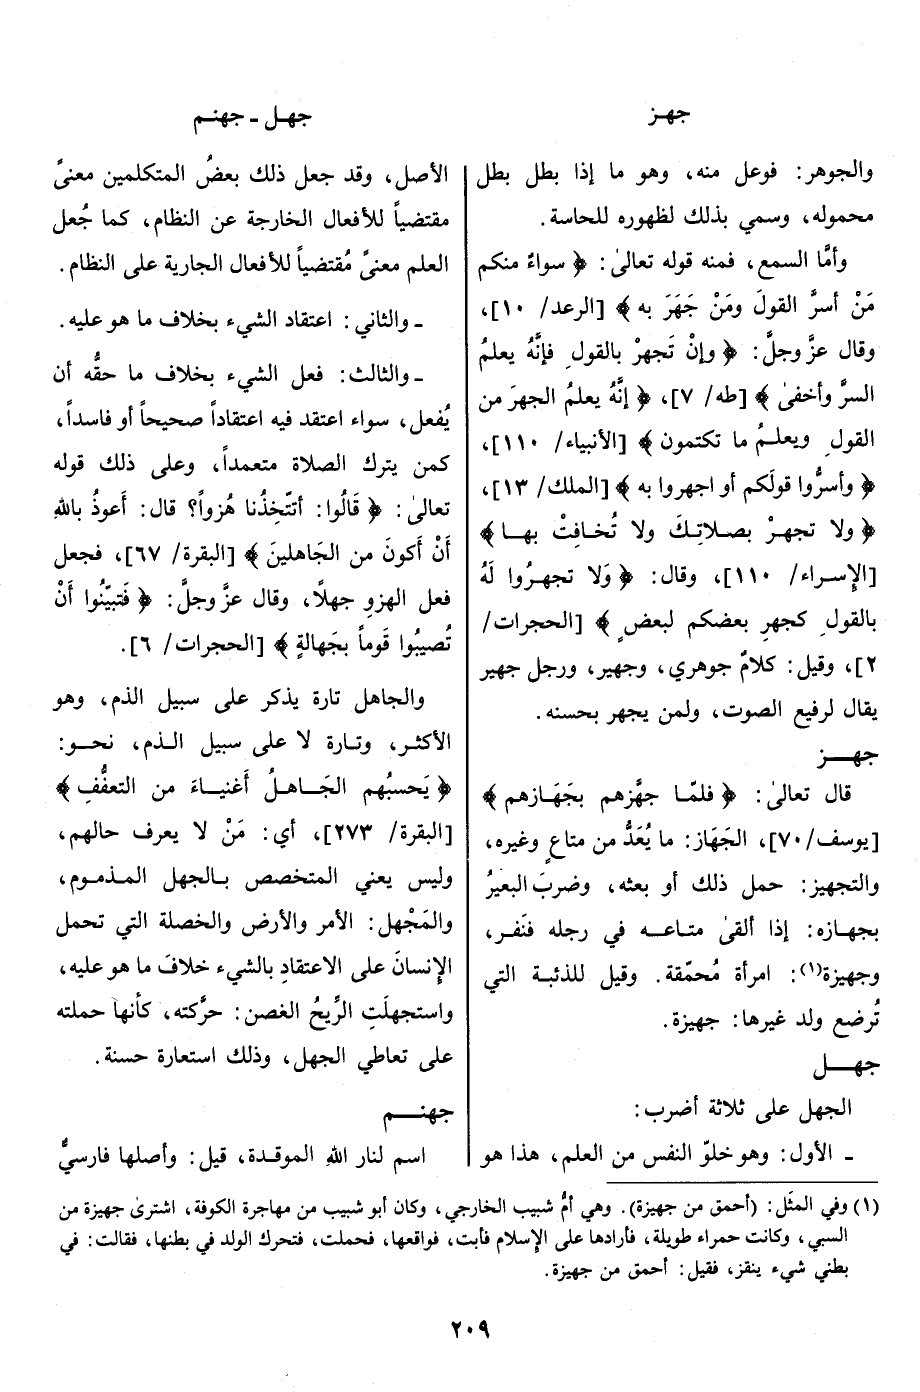 جهز
جهل - جهنم
والجوهر: فوعل منه، وهو ما إذا بطل بطل
محموله، وسمي بذلك لظهوره للحاسة.
وأمَّا السمع، فمنه قوله تعالىٰ: ﴿ سواءٌ منكم
مَنْ أسرَّ القولَ ومَنْ جَهَرَ به ﴾ [الرعد/ ١٠]،
وقال عزَّ وجلَّ: ﴿ وإنْ تَجهرْ بالقولِ فإنَّهُ يعلمُ
السرَّ وأخفىٰ ﴾ [طه/ ٧]، ﴿ إنَّهُ يعلمُ الجهرَ من
القولِ ويعلمُ ما تكتمون ﴾ [الأنبياء/ ١١٠]،
﴿ وأسرُّوا قولَكم أو اجهروا به ﴾ [الملك/ ١٣]،
﴿ ولا تجهرْ بصلاتِكَ ولا تُخافِتْ بها ﴾
[الإسراء/ ١١٠]، وقال: ﴿ وَلا تجهرُوا لَهُ
بالقولِ كجهرِ بعضكم لبعضٍ ﴾ [الحجرات/
٢]، وقيل: كلامٌ جوهري، وجهير، ورجل جهير
يقال لرفيع الصوت، ولمن يجهر بحسنه.
جهز
قال تعالىٰ: ﴿ فلمَّا جهَّزهم بجَهَازهم ﴾
[يوسف/٧٠]، الجَهَاز: ما يُعَدُّ من متاعٍ وغيره،
والتجهيز: حمل ذلك أو بعثه، وضربَ البعيرُ
بجهازه: إذا ألقىٰ متاعه في رجله فنَفر،
وجهيزة(١): امرأة مُحمّقة. وقيل للذئبة التي
تُرضع ولد غيرها: جهيزة.
جهل
الجهل على ثلاثة أضرب:
ـ الأول: وهو خلوّ النفس من العلم، هذا هو
الأصل، وقد جعل ذلك بعضُ المتكلمين معنىً
مقتضياً للأفعال الخارجة عن النظام، كما جُعل
العلم معنىً مُقتضياً للأفعال الجارية على النظام.
ـ والثاني: اعتقاد الشيء بخلاف ما هو عليه.
ـ والثالث: فعل الشيء بخلاف ما حقُّه أن
يُفعل، سواء اعتقد فيه اعتقاداً صحيحاً أو فاسداً،
كمن يترك الصلاة متعمداً، وعلى ذلك قوله
تعالىٰ: ﴿ قَالُوا: أتتّخِذُنا هُزواً؟ قال: أَعوذُ باللهِ
أَنْ أَكونَ من الجَاهلينَ ﴾ [البقرة/ ٦٧]، فجعل
فعل الهزو جهلًا، وقال عزَّ وجلَّ: ﴿ فَتبيّنُوا أَنْ
تُصيبُوا قَوماً بجَهالةٍ ﴾ [الحجرات/ ٦].
والجاهل تارة يذكر على سبيل الذم، وهو
الأكثر، وتارة لا على سبيل الذم، نحو:
﴿ يَحسبُهم الجَاهلُ أَغنياءَ من التعفُّفِ ﴾
[البقرة/ ٢٧٣]، أي: مَنْ لا يعرف حالهم،
وليس يعني المتخصص بالجهل المذموم،
والمَجْهل: الأمر والأرض والخصلة التي تحمل
الإنسانَ على الاعتقادِ بالشيء خلافَ ما هو عليه،
واستجهلَتِ الرِّيحُ الغصن: حرَّكته، كأنها حملته
على تعاطي الجهل، وذلك استعارة حسنة.
جهنم
اسم لنار الله الموقدة، قيل: وأصلها فارسيٌّ
(١) وفي المثَل: (أحمق من جهيزة). وهي أمُّ شبيب الخارجي، وكان أبو شبيب من مهاجرة الكوفة، اشترىٰ جهيزة من
السبي، وكانت حمراء طويلة، فأرادها على الإسلام فأبت، فواقعها، فحملت، فتحرك الولد في بطنها، فقالت: في
بطني شيء ينقز، فقيل: أحمق من جهيزة.
٢٠٩